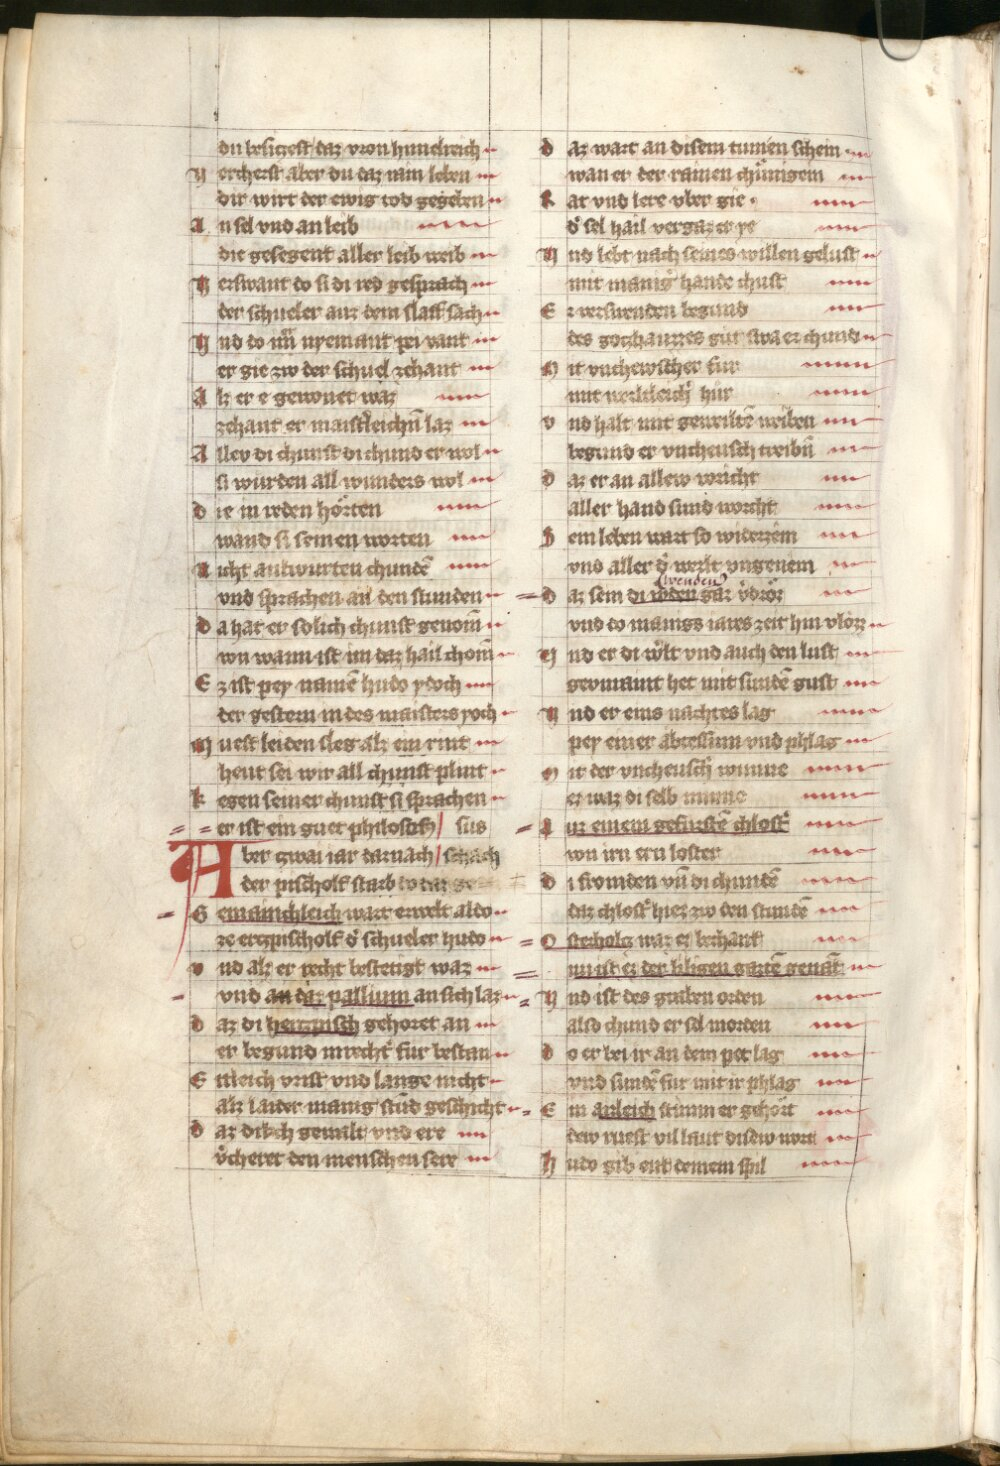 du besiczest daz vron himelreich
V ercherst aber du daz nain leben
dir wirt der ewig tod gegeben
A n sel vnd an leib
die gesegent aller leib weib
V erswant do si di red gesprach
der schueler auz dem slaff sach
V nd do im nyemant pei vant
er gie zw der schuel zehant
A lz er e gewonet waz
zehant er maisterleichen laz
A llev di chunst di chund er wol
si wurden all wunders vol
d ie in reden hörten
wand si seinen worten
N icht antwurten chundē
vnd sprachen an den stunden
d a hat er solich chunst genom̄
von wann ist im daz hail chom̄
E z ist pey namē hudo ydoch
der gestern in des maisters yoch
M uest leiden sleg alz ein rint
heut sei wir all chunst plint
k egen seiner chunst si sprachen
er ist ein guet philosoph / sus
A ber zwai iar darnach / schach
der pischolf starb do daz ge
G emainchleich wart erwelt aldo
ze erczpischolf d' schueler hudo
v nd alz er recht bestetigt waz
vnd an daz pallium an sich laz
d az di herczpisch gehoret an
er begund vnrecht fur bestan
E nleich vrist vnd lange nicht
alz laider manig stūd geschicht
d az dikch gewalt vnd ere
v'cheret den menschen sere
d az wart an disem tumen schein
wan er der rainen chünigein
R at vnd lere vber gie
d' sel hail vergaz er ye
V nd lebt nach seines willen gelust
mit manig' hande chust
E r verswenden begund
des gotzhauzzes gut swa er chund
M it vnchewscher fur
mit werltleich' hur
v nd halt mit geweibtē weiben
begund er vncheusch treibn̄
d az er an allew voricht
aller hand sund worcht
S ein leben wart so widerzëm
vnd aller d' werlt vngenem
wenden
d az sein di reden gar v'droz
vnd do manigs iares zeit hin vloz
V nd er di w'lt vnd auch den lust
gevmaint het mit sundē gust
V nd er eins nachtes lag
pey einer abtessinn vnd phlag
M it der vncheusch' minne
er waz di selb minne
A uz einem gefurstē chlost'
von irn ern loster
d i fromden vn̄ di chundē
daz chlost' hiez zw den stundē
O sterholcz waz ez bechant
nu ist ez der hiligen gartē genāt
V nd ist des graben orden
also chund er sel morden
d o er bei ir an dem pet lag
vnd sundē fur mit ir phlag
E in anleich stimm er gehort
dew ruest vil laut disew wort
H udo gib end deinem spil